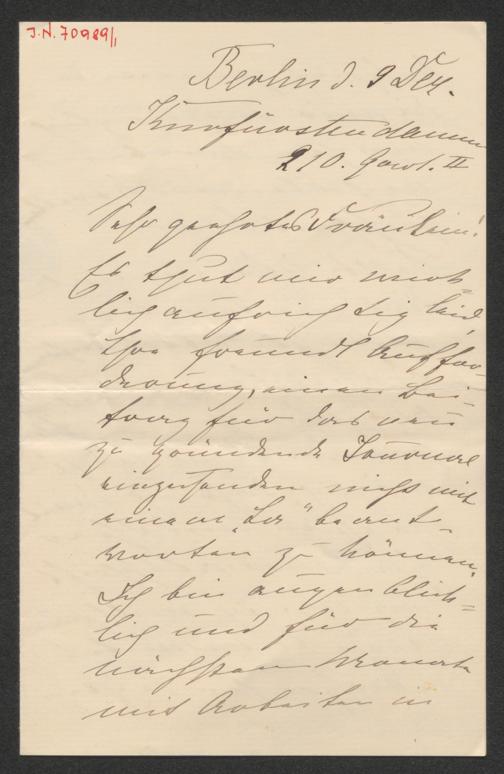 J.N. 70989/1
Berlin d. 9 Dez.
Kurfürstendamm
210. Gart. II
Sehr geehrtes Fräulein!
Es thut mir wirk=
lich aufrichtig leid,
Ihre freundl Auffor=
derung, einen Bei=
trag für das neu
zu gründende Journal
einzusenden nicht mit
einem "Ja" beant=
worten zu können.
Ich bin augenblick=
lich und für die
nächsten Monate
mit Arbeiten in